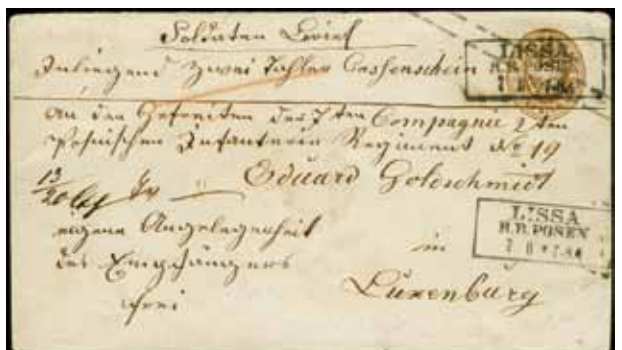 Soldaten Brief
Inliegend zwei Thaler Cassenschein
LISSA
R.B. POSEN
an den Gefreiten der 7ten Compagnie 2ten
Posenschen Infanterie Regiment No 19
Eduard Goldschmidt
eigene Angelegenheit
des Empfängers
frei
in
Luxenburg
LISSA
R.B. POSEN